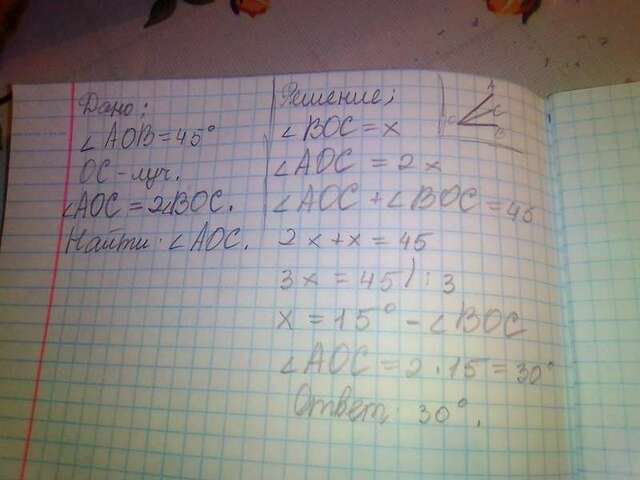 Дано:
∠AOB=45°
OC-луч.
∠AOC=2∠BOC.
Найти: ∠AOC.
Решение:
∠BOC=x
∠AOC=2x
∠AOC+∠BOC=45
2x+x=45
3x=45):3
x=15°-∠BOC
∠AOC=2·15=30°
Ответ: 30°.
A
C
O